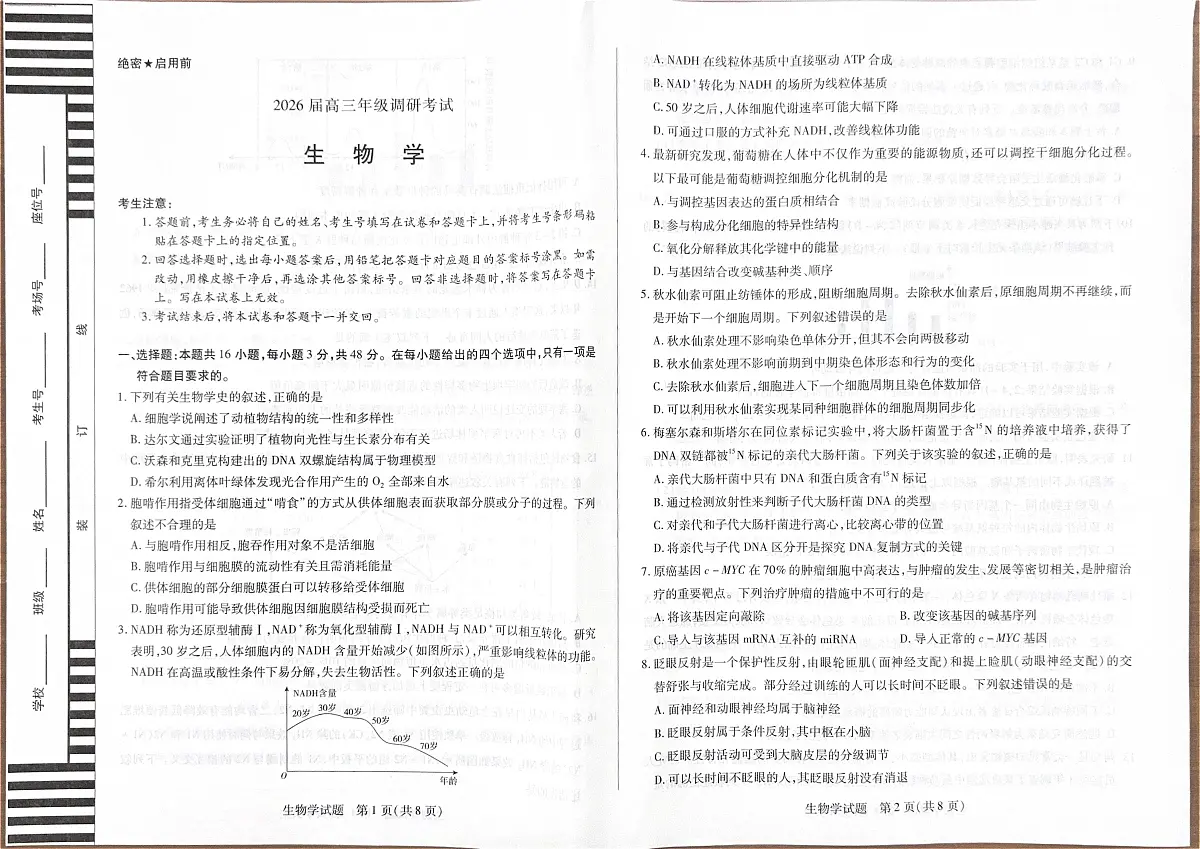 绝密★启用前
2026 届高三年级调研考试
生 物 学
考生注意:
1. 答题前,考生务必将自己的姓名、考生号填写在试卷和答题卡上,并将考生号条形码粘
贴在答题卡上的指定位置。
2. 回答选择题时,选出每小题答案后,用铅笔把答题卡对应题目的答案标号涂黑。如需
改动,用橡皮擦干净后,再选涂其他答案标号。回答非选择题时,将答案写在答题卡
上。写在本试卷上无效。
3. 考试结束后,将本试卷和答题卡一并交回。
一、选择题:本题共 16 小题,每小题 3 分,共 48 分。在每小题给出的四个选项中,只有一项是
符合题目要求的。
1. 下列有关生物学史的叙述,正确的是
A. 细胞学说阐述了动植物结构的统一性和多样性
B. 达尔文通过实验证明了植物向光性与生长素分布有关
C. 沃森和克里克构建出的 DNA 双螺旋结构属于物理模型
D. 希尔利用离体叶绿体发现光合作用产生的 O₂ 全部来自水
2. 胞啃作用指受体细胞通过“啃食”的方式从供体细胞表面获取部分膜或分子的过程。下列
叙述不合理的是
A. 与胞啃作用相反,胞吞作用对象不是活细胞
B. 胞啃作用与细胞膜的流动性有关且需消耗能量
C. 供体细胞的部分细胞膜蛋白可以转移给受体细胞
D. 胞啃作用可能导致供体细胞因细胞膜结构受损而死亡
3. NADH 称为还原型辅酶Ⅰ,NAD⁺ 称为氧化型辅酶Ⅰ,NADH 与 NAD⁺ 可以相互转化。研究
表明,30 岁之后,人体细胞内的 NADH 含量开始减少(如图所示),严重影响线粒体的功能。
NADH 在高温或酸性条件下易分解,失去生物活性。下列叙述正确的是
NADH含量
20岁 30岁 40岁
50岁
60岁
70岁
0
年龄
生物学试题 第 1 页(共 8 页)
A. NADH 在线粒体基质中直接驱动 ATP 合成
B. NAD⁺ 转化为 NADH 的场所为线粒体基质
C. 50 岁之后,人体细胞代谢速率可能大幅下降
D. 可通过口服的方式补充 NADH,改善线粒体功能
4. 最新研究发现,葡萄糖在人体中不仅作为重要的能源物质,还可以调控干细胞分化过程。
以下最可能是葡萄糖调控细胞分化机制的是
A. 与调控基因表达的蛋白质相结合
B. 参与构成分化细胞的特异性结构
C. 氧化分解释放其化学键中的能量
D. 与基因结合改变碱基种类、顺序
5. 秋水仙素可阻止纺锤体的形成,阻断细胞周期。去除秋水仙素后,原细胞周期不再继续,而
是开始下一个细胞周期。下列叙述错误的是
A. 秋水仙素处理不影响染色单体分开,但其不会向两极移动
B. 秋水仙素处理不影响前期到中期染色体形态和行为的变化
C. 去除秋水仙素后,细胞进入下一个细胞周期且染色体数加倍
D. 可以利用秋水仙素实现某同种细胞群体的细胞周期同步化
6. 梅塞尔森和斯塔尔在同位素标记实验中,将大肠杆菌置于含¹⁵N 的培养液中培养,获得了
DNA 双链都被¹⁵N 标记的亲代大肠杆菌。下列关于该实验的叙述,正确的是
A. 亲代大肠杆菌中只有 DNA 和蛋白质含有¹⁵N 标记
B. 通过检测放射性来判断子代大肠杆菌 DNA 的类型
C. 对亲代和子代大肠杆菌进行离心,比较离心带的位置
D. 将亲代与子代 DNA 区分开是探究 DNA 复制方式的关键
7. 原癌基因 c-MYC 在 70% 的肿瘤细胞中高表达,与肿瘤的发生、发展等密切相关,是肿瘤治
疗的重要靶点。下列治疗肿瘤的措施中不可行的是
A. 将该基因定向敲除 B. 改变该基因的碱基序列
C. 导入与该基因 mRNA 互补的 miRNA D. 导入正常的 c-MYC 基因
8. 眨眼反射是一个保护性反射,由眼轮匝肌(面神经支配)和提上睑肌(动眼神经支配)的交
替舒张与收缩完成。部分经过训练的人可以长时间不眨眼。下列叙述错误的是
A. 面神经和动眼神经均属于脑神经
B. 眨眼反射属于条件反射,其中枢在小脑
C. 眨眼反射活动可受到大脑皮层的分级调节
D. 可以长时间不眨眼的人,其眨眼反射没有消退
生物学试题 第 2 页(共 8 页)
学校
班级
姓名
考生号
考场号
座位号
装
订
线